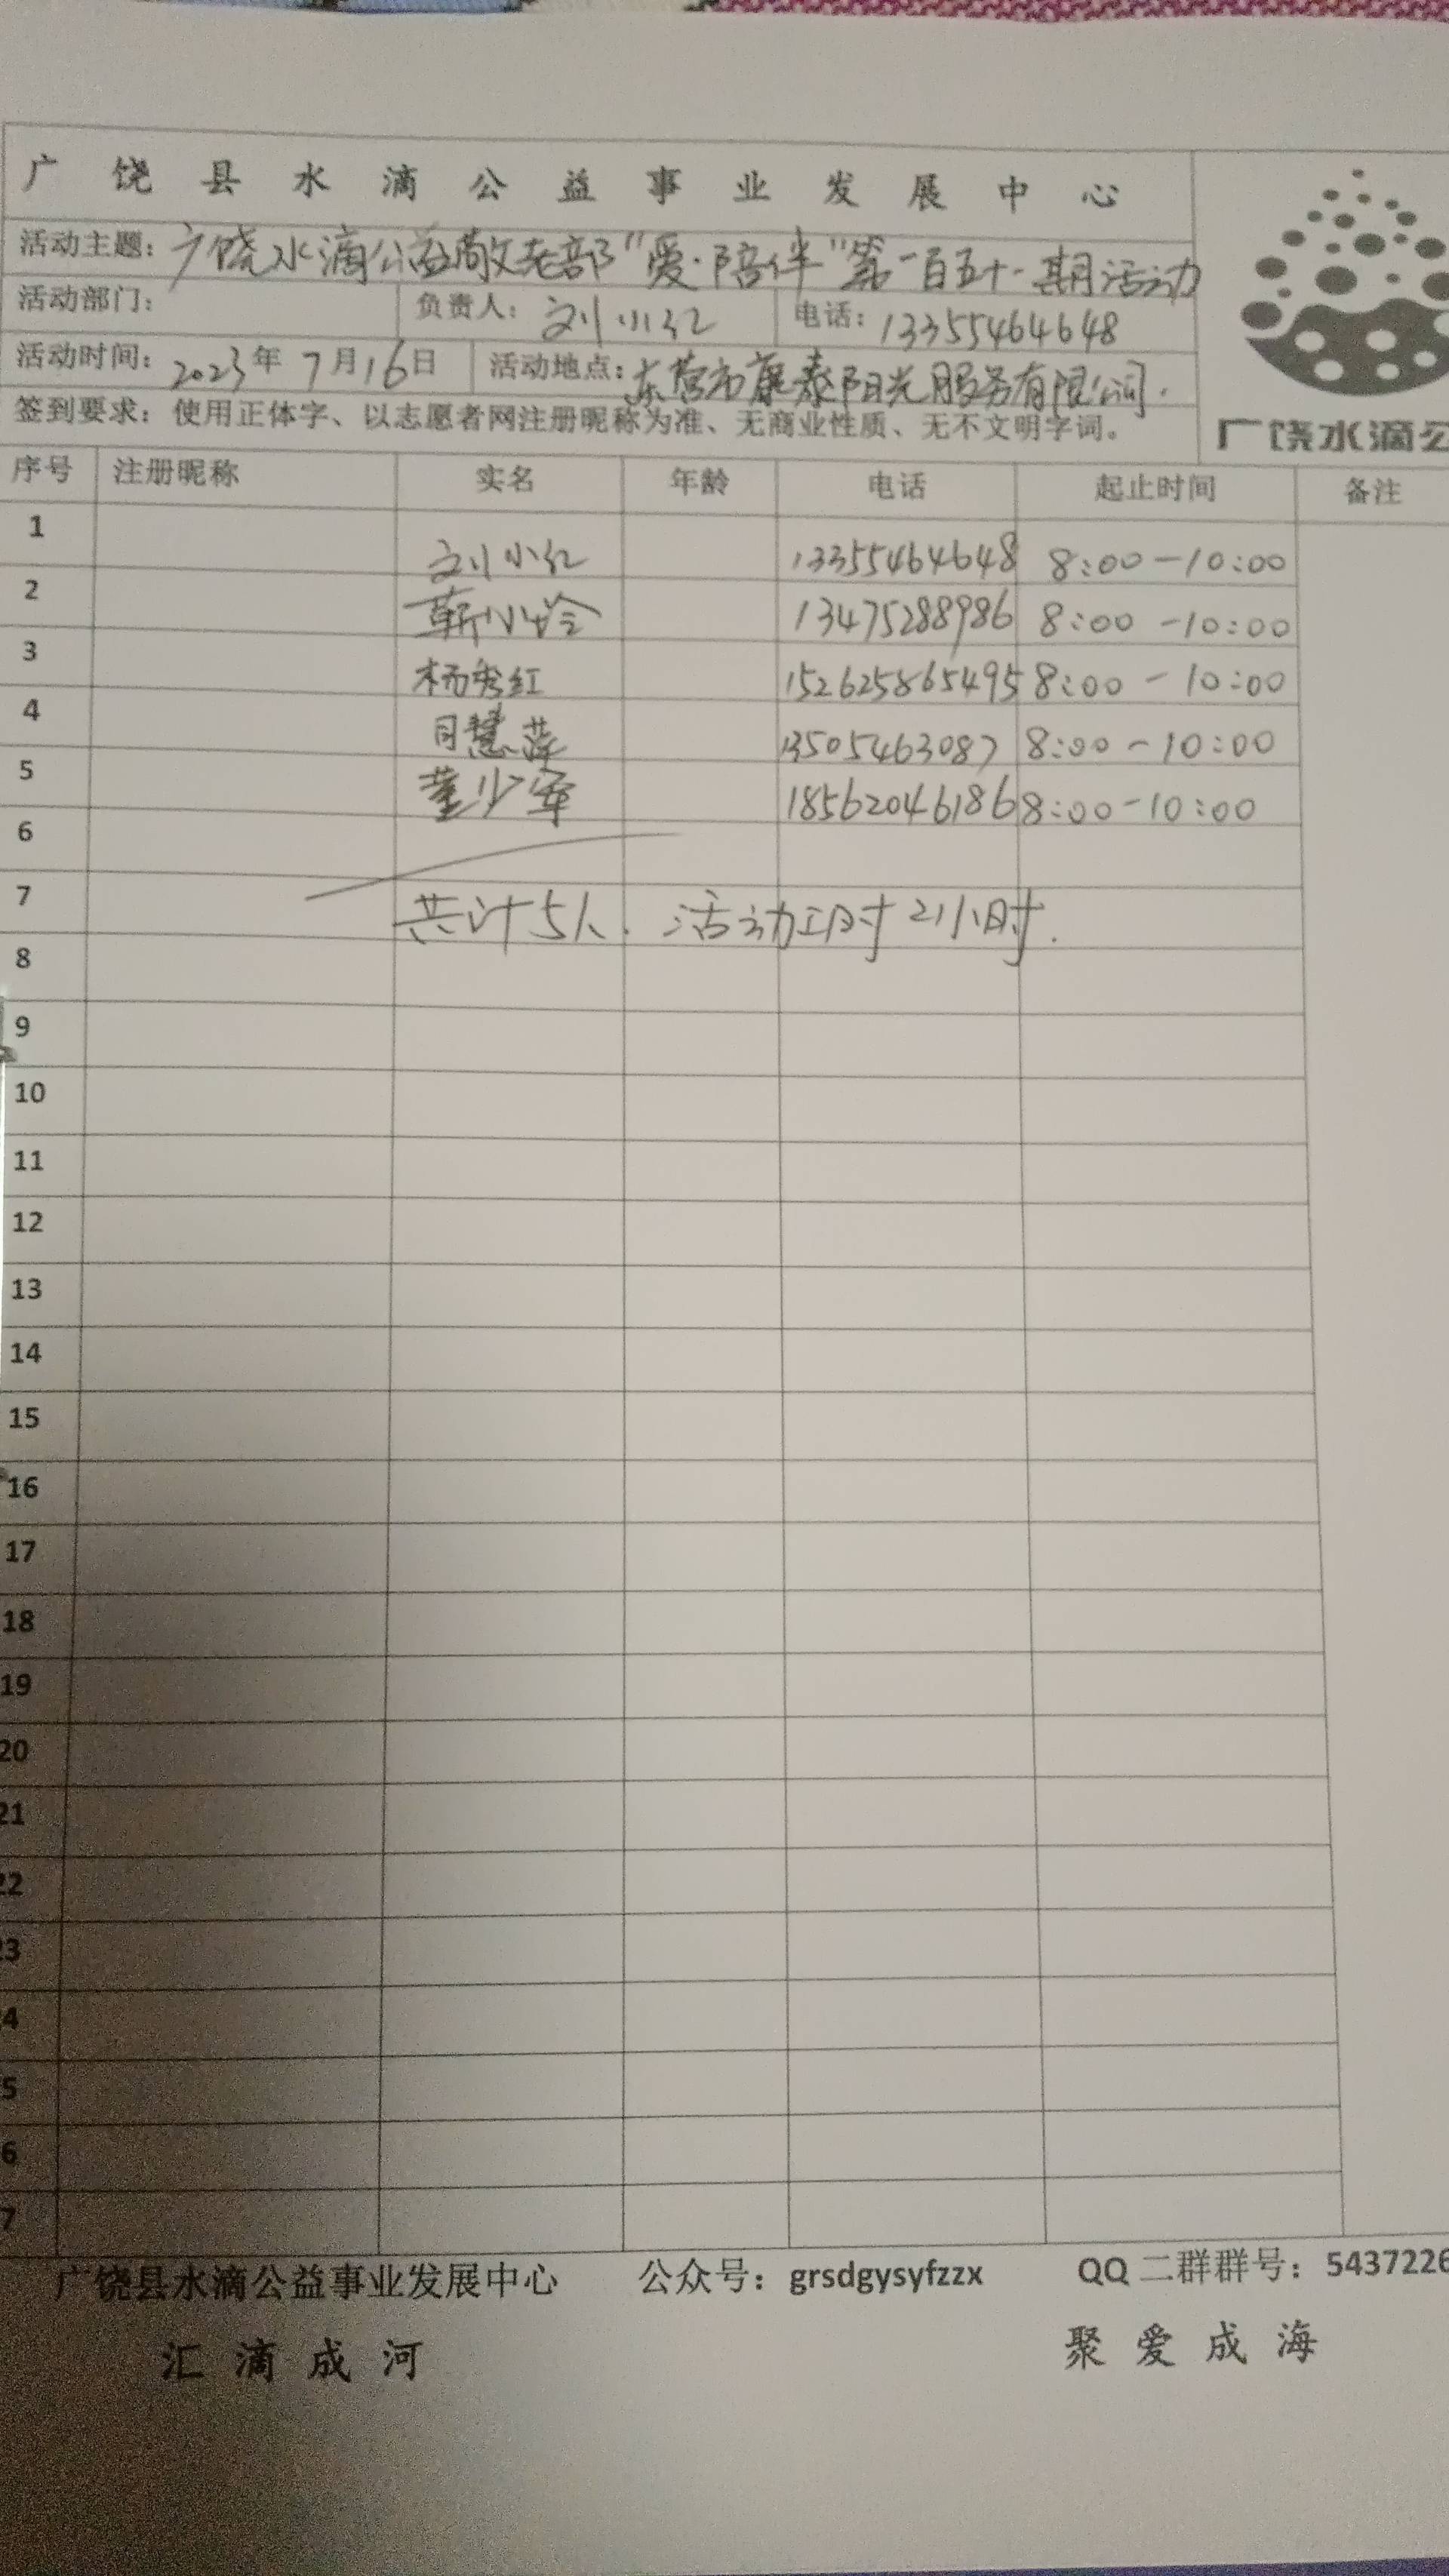 广饶县水滴公益事业发展中心
活动主题：广饶水滴公益敬老部"爱·陪伴"第一百五十一期活动
活动部门： 负责人：刘小红 电话：13355464648
活动时间：2023年7月16日 活动地点：东营市康泰阳光服务有限公司.
签到要求：使用正体字、以志愿者网注册昵称为准、无商业性质、无不文明字词。
广饶水滴公
序号 注册昵称 实名 年龄 电话 起止时间 备注
1 刘小红 13355464648 8:00-10:00
2 靳小玲 13475288986 8:00-10:00
3 杨秀红 152625865495 8:00-10:00
4 慧萍 13505463087 8:00-10:00
5 董少军 18562046186 8:00-10:00
6
7 共计5人. 活动工时2小时.
8
9
10
11
12
13
14
15
16
17
18
19
20
21
22
23
4
5
6
7
广饶县水滴公益事业发展中心 公众号：grsdgysyfzzx QQ二群群号：5437226
汇滴成河 聚爱成海